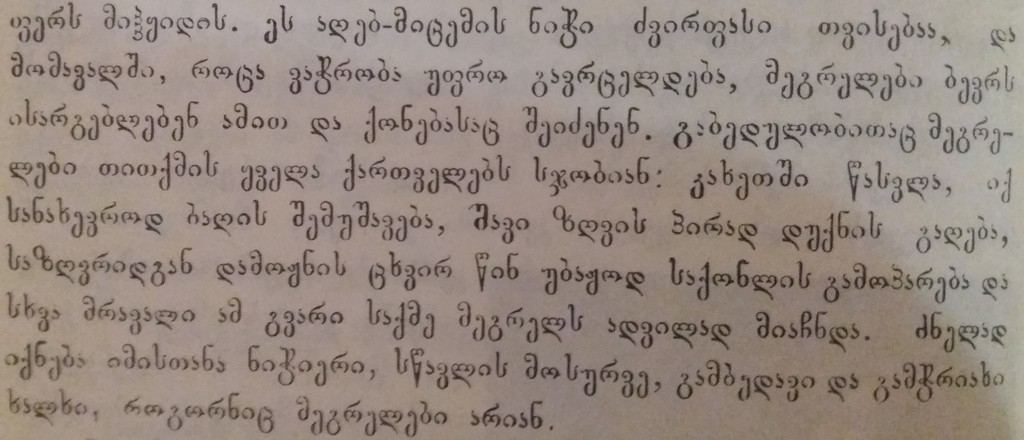 ფერს მიჰყიდის. ეს აღებ-მიცემის ნიჭი ძვირფასი თვისებაა, და
მომავალში, როცა ვაჭრობა უფრო გავრცელდება, მეგრელები ბევრს
ისარგებლებენ ამით და ქონებასაც შეიძენენ. გაბედულობითაც მეგრე-
ლები თითქმის ყველა ქართველებს სჯობიან: კახეთში წასვლა, იქ
სანახევროდ ბაღის შემუშავება, შავი ზღვის პირად დუქნის გაღება,
საზღვრიდგან დამოჟნის ცხვირ წინ უბაჟოდ საქონლის გამოპარება და
სხვა მრავალი ამ გვარი საქმე მეგრელს ადვილად მიაჩნდა. ძნელად
იქნება იმისთანა ნიჭიერი, სწავლის მოსურვე, გამბედავი და გამჭრიახი
ხალხი, როგორნიც მეგრელები არიან.